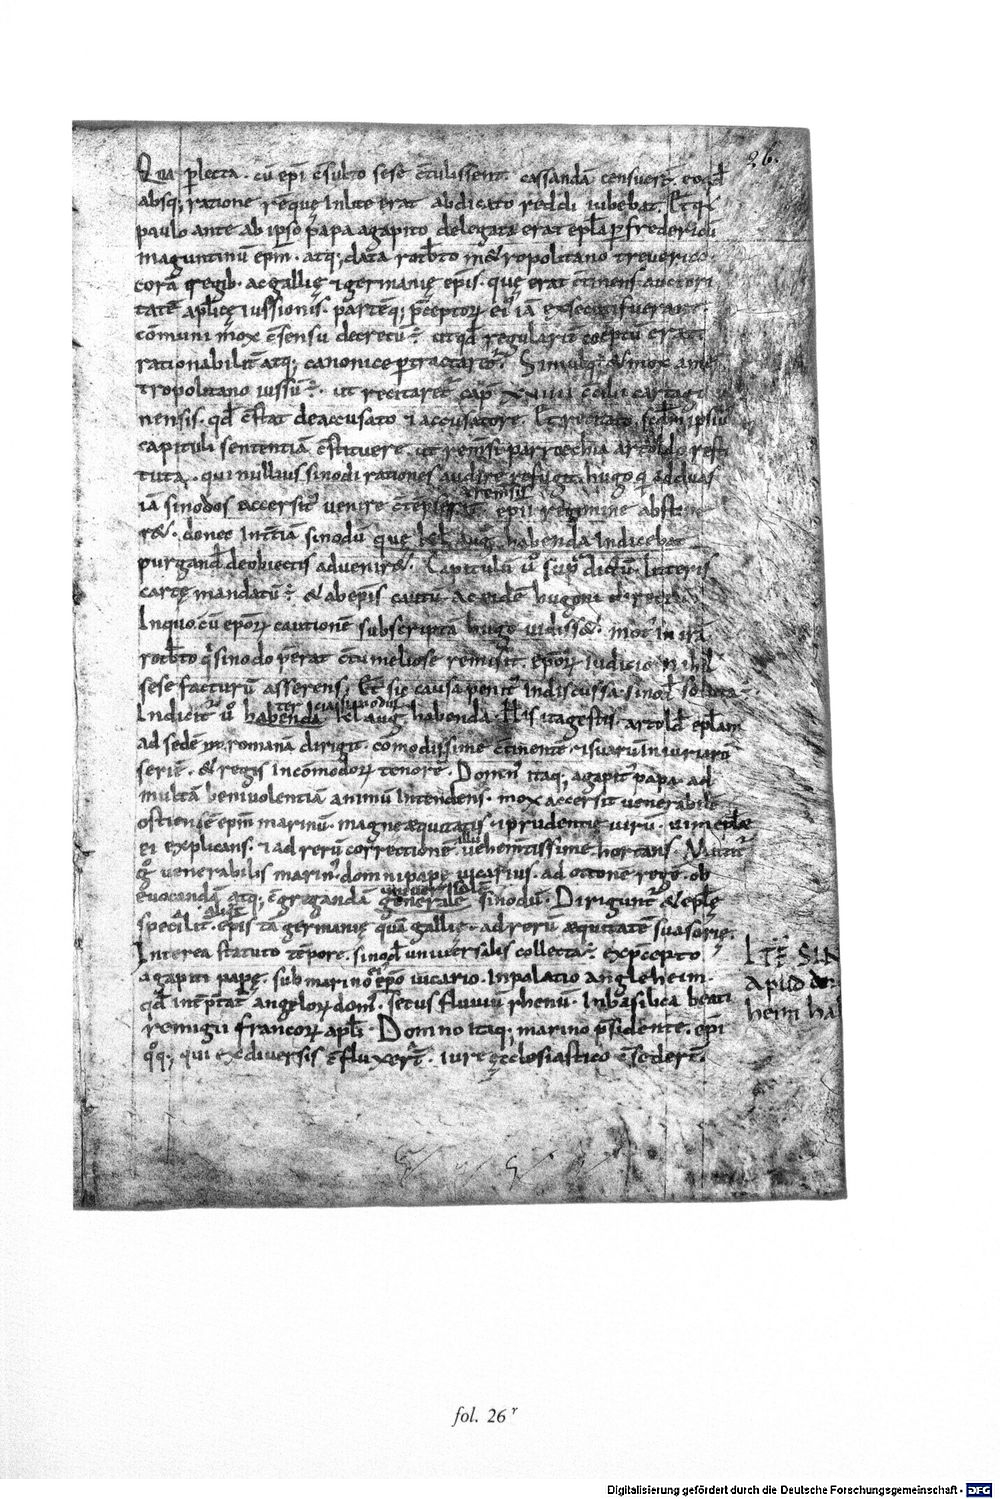 26.
Qua plecta. cū epi c̄sulto sese c̄tulissent. cassandā censuer̄t. eo qd
absq; ratione reꝗ̄ue Inlite erat abdicato reddi iubebat. Et q
paulo ante ab ipso papa agapito delegata erat epl̄a ꝑ fredericū
maguntinū epm̄. atq; data rotb̄to m&ropolitano treverico.
corā regib. ac gallię ⁊ germanię epis. quę erat c̄tinens auctori
tatē aplicę iussionis. partēq; p̄ceptorꝝ ei iā exsecuti fuerant.
cōmuni mox c̄sensu decretū ÷ ut qd regularit coeptū erat
rationabilit atq; canonice ꝑtractaretr. Simulq; & mox a me
tropolitano iussū ÷. ut recitaret cap̄ XVIIII c̄cilii cartagi
nensis. qd c̄stat de accusato ⁊ accusatore. Et recitato, scdm ipsiu
capituli sententiā c̄stituere. ut remsi parrœchia artoldo resti
tuta. qui nullius sinodi rationes audire refugit. hugo q ad duas
remsis
iā sinodos accersit venire c̄tēpserat. epii regimine abstine
r&. donec In t̄tiā sinodū quę kl aug habendā Indicebat
purgand de obiectis advenir&. Capitulū ů sup dictū. litteris
cartę mandatū ÷ & ab epis cautū. ac eidē hugoni directū
In quo. cū eporꝝ cautionē subscriptā hugo vidiss&. mot In irā
rotb̄to q sinodo p̄erat c̄tumeliose remisit. eporꝝ iudicio nihil
sese facturū asserens. Et sic causa penit Indiscussa. sinod soluta
ter cia sinodus
Indicit ů habenda kl aug habenda. His ita gestis. artold epl̄am
ad sedē romanā dirigit. cōmodissime c̄tinentē. ⁊ suarū Iniuriarū
seriē. & regis Incōmodorꝝ tenorē. Domn itaq; agapit papa. ad
multā benivolentiā animū Intendens. mox accersit venerabilē
ostiensē epm̄ marinū. magne æquitatis. ⁊ prudentię virū. vim eplæ
illū
ei explicans. ⁊ ad rerū correctionē. vehemtissime hortans. Mittit
g venerabilis marin. domni papę vicarius. ad ottonē regē. ob
universalē
evocandā atq; c̄gregandā generalē sinodū. Dirigunt & eplę
aliq
specilit. epis tā germanię quā gallię. ad rerū æquitatē suasorię.
Interea statuto tēpore. sinod universalis collecta ÷. ex p̄cepto
agapiti papę. sub marino epo vicario. In palatio angleheim.
qd int̄ptat angelorꝝ dom. secus fluviū rhenū. In basilica beati
remigii francorꝝ apli. Domno itaq; marino p̄sidente. epi
qq; qui ex diversis c̄fluxer̄t. iure ęcclesiastico c̄seder̄t.
apud
heim ha
fol. 26ʳ
Digitalisierung gefördert durch die Deutsche Forschungsgemeinschaft - DFG